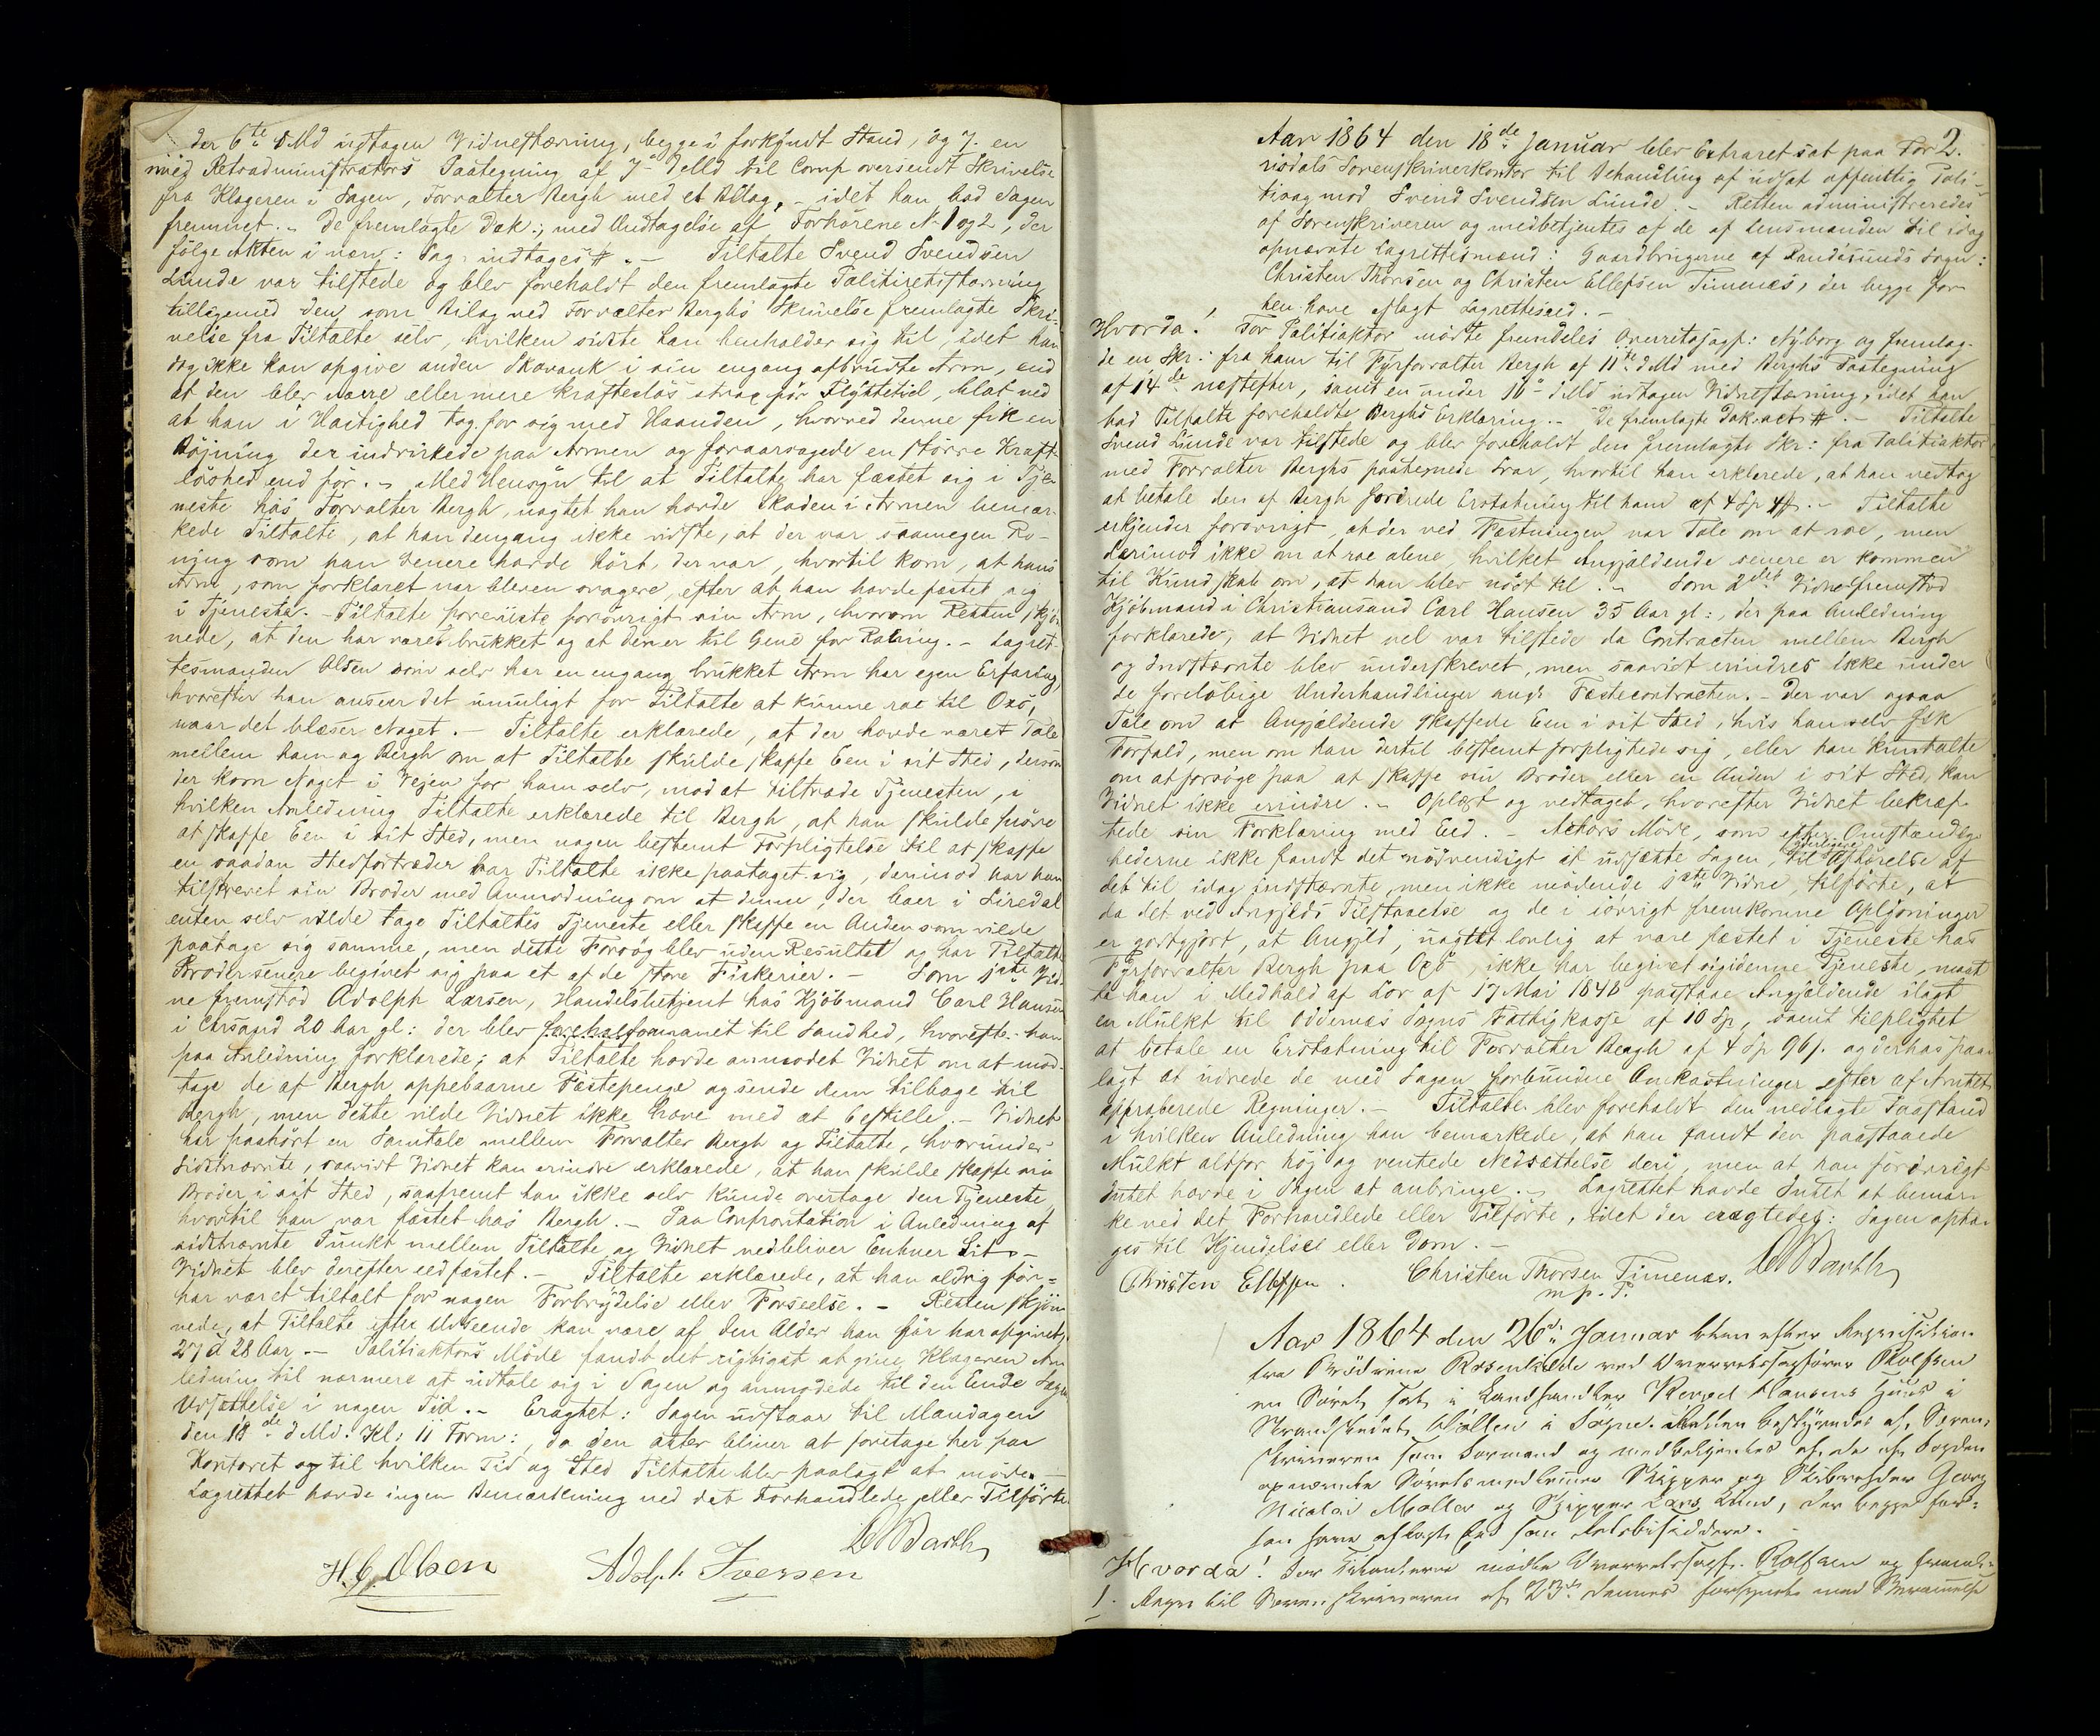 der 6te d Md udtagen Vidnestævning, begge i forkyndt Stand, og 7. en
med Retsadministrators Paategning af 7de d Md til Comp oversendt Skrivelse
fra Klageren i Sagen, Forvalter Bergh med et Bilag, - idet han bad Sagen
fremmet. - De fremlagte Dok., med Undtagelse af Forhørene N. 1 og 2, der
følge Akten i nærv: Sag indtages #. - Tiltalte Svend Svendsen
Lunde var tilstede og blev foreholdt den fremlagte Politiretsstævning
tilligemed den, som Bilag ved Forvalter Berghs Skrivelse fremlagte Skri-
velse fra Tiltalte selv, hvilken sidste han henholder sig til, idet han
dog ikke kan opgive anden Skavank i sin engang afbrudte Arm, end
at den blev værre eller mere kraftesløs strax før Flyttetid, blot ved
at han i Hastighed tog for sig med Haanden, hvorved denne fik en
Bøjning der indvirkede paa Armen og foraarsagede en større Kraft-
løshed end før. - Med Hensyn til at Tiltalte har fæstet sig i Tje-
neste hos Forvalter Bergh, uagtet han havde Skaden i Armen bemær-
kede Tiltalte, at han dengang ikke vidste, at der var saamegen Ro-
ning som han senere havde hørt, der var, hvortil kom, at hans
Arm, som forklaret var bleven svagere, efter at han havde fæstet sig
i Tjeneste. - Tiltalte foreviiste forøvrigt sin Arm, hvorom Retten skjøn-
nede, at den har været brukket og at den er til Gene for Roning. - Lagret-
tesmanden Olsen som selv har en engang brukket Arm har egen Erfaring,
hvorefter han anseer det umuligt for Tiltalte at kunne roe til Oxø,
naar det blæser Noget. - Tiltalte erklærede, at der havde været Tale
mellem ham og Bergh om at Tiltalte skulde skaffe Een i sit Sted, dersom
der kom Noget i Vejen for ham selv, mod at tiltræde Tjenesten, i
hvilken Anledning Tiltalte erklærede til Bergh, at han skulde prøve
at skaffe Een i sit Sted, men nogen bestemt Forpligtelse til at skaffe
en saadan Stedfortræder har Tiltalte ikke paataget sig, derimod har han
tilskrevet sin Broder med Anmodning om at denne, der boer i Siredal
enten selv vilde tage Tiltaltes Tjeneste eller skaffe en Anden som vilde
paatage sig samme, men dette Forsøg blev uden Resultat og har Tiltaltes
Broder senere begivet sig paa et af de store Fiskerier. - Som 1ste Vid-
ne fremstod Adolph Larsen, Handelsbetjent hos Kjøbmand Carl Hansen
i Chrsand 20 Aar gl: der blev formanet til Sandhed, hvorefter han
paa Anledning forklarede; at Tiltalte havde anmodet Vidnet om at mod-
tage de af Bergh oppebaarne Fæstepenge og sende dem tilbage til
Bergh, men dette vilde Vidnet ikke have med at bestille. - Vidnet
har paahørt en Samtale mellem Forvalter Bergh og Tiltalte, hvorunder
Sidstnævnte, saavidt Vidnet kan erindre erklærede, at han skulde skaffe sin
Broder i sit Sted, saafremt han ikke selv kunde overtage den Tjeneste
hvortil han var fæstet hos Bergh. - Paa Confrontation i Anledning af
sidstnævnte Punkt mellem Tiltalte og Vidnet vedbliver Enhver Sit -
Vidnet blev derefter eedfæstet. - Tiltalte erklærede, at han aldrig før-
har været tiltalt for nogen Forbrydelse eller Forseelse. - Retten skjøn-
nede, at Tiltalte efter Udseende kan være af den Alder han før har opgivet,
27 à 28 Aar. - Politiaktors Møde fandt det rigtigst at give Klageren An-
ledning til nærmere at udtale sig i Sagen og anmodede til den Ende Sagens
Udsættelse i nogen Tid. - Eragtet: Sagen udstaar til Mandagen
den 18de d Md. Kl: 11 Form:, da den atter bliver at foretage her paa
Kontoret og til hvilken Tid og Sted Tiltalte blev paalagt at møde. -
Lagrettet havde ingen Bemærkning ved det Forhandlede eller Tilførte.
H. C. Olsen Adolph Iversen Barth
2.
Aar 1864 den 18de Januar blev Extraret sat paa Tor-
risdals Sorenskriverkontor til Behandling af udsat offentlig Poli-
tisag mod Svend Svendsen Lunde. - Retten administreredes
af Sorenskriveren og medbetjentes af de af Lensmanden til idag
opnævnte Lagrettesmænd: Gaardbrugerne af Randøsunds Sogn:
Christen Thorsen og Christen Ellefsen Timenes, der begge for-
hen have aflagt Lagrettesed. -
Hvorda! For Politiaktor mødte fremdeles Overretssagf: Nyborg og fremlag-
de en Skr: fra ham til Fyrforvalter Bergh af 11te d Md med Berghs Paategning
af 14de næstefter, samt en under 10de d Md udtagen Vidnestævning, idet han
bad Tiltalte foreholdte Berghs Erklæring. - De fremlagte Dok. act #. - Tiltalte
Svend Lunde var tilstede og blev foreholdt den fremlagte Skr: fra Politiaktor
med Forvalter Berghs paategnede Svar, hvortil han erklærede, at han vedtog
at betale den af Bergh fordrede Erstatning til ham af 4 Sp 4 ß. - Tiltalte
erkjender forøvrigt, at der ved Fæstningen var Tale om at roe, men
derimod ikke om at roe alene, hvilket Angjældende senere er kommen
til Kundskab om, at han blev nødt til. - Som 2det Vidne fremstod
Kjøbmand i Christiansand Carl Hansen 35 Aar gl:, der paa Anledning
forklarede, at Vidnet vel var tilstede da Contracten mellem Bergh
og Indstævnte blev underskrevet, men saavidt erindres ikke under
de foreløbige Underhandlinger ang: Fæstecontracten. - Der var ogsaa
Tale om at Angjældende skaffede Een i sit Sted, hvis han selv fik
Forfald, men om han dertil bestemt forpligtede sig, eller han kun talte
om at forsøge paa at skaffe sin Broder eller en Anden i sit Sted, kan
Vidnet ikke erindre. - Oplæst og vedtaget, hvorefter Vidnet bekræf-
tede sin Forklaring med Eed. - Aktors Møde, som efter Omstændig-
hederne ikke fandt det nødvendigt at udsætte Sagen, til yderligere Afhørelse af
det til idag indstævnte, men ikke mødende 1ste Vidne, tilførte, at
da det ved Angjelds Tilstaaelse og de i iøvrigt fremkomne Oplysninger
er godtgjort, at Angjeld, uagtet lovlig at være fæstet i Tjeneste hos
Fyrforvalter Bergh paa Oxø, ikke har begivet sig i denne Tjeneste, maat-
te han i Medhold af Lov af 17 Mai 1848 paastaae Angjældende ilagt
en Mulkt til Oddernes Sogns Fattigkasse af 10 Sp, samt tilpligtet
at betale en Erstatning til Forvalter Bergh af 4 Sp 96 ß. og derhos paa-
lagt at udrede de med Sagen forbundne Omkostninger efter af Amtet
approberede Regninger. - Tiltalte blev foreholdt den nedlagte Paastand
i hvilken Anledning han bemærkede, at han fandt den paastaaede
Mulkt altfor høj og ventede Nedsættelse deri, men at han forøvrigt
Intet havde i Sagen at anbringe. - Lagrettet havde Intet at bemær-
ke ved det Forhandlede eller Tilførte, idet der eragtedes: Sagen opta-
ges til Kjendelse eller Dom. -
Christen Ellefsen. Christen Thorsen Timenæs. Barth
m. p. F.
Aar 1864 den 26de Januar blev efter Requisition
fra Brødrene Rosenkilde ved Overretssagfører Rolfsen
en Søret sat i Landhandler Reyer Hansens Huus i
Strandstedet i Søgne. Retten bestyredes af Soren-
skriveren som Formand og medbetjentes af de af Fogden
opnævnte Søretsmedlemmer Skipper og Skibsreder Georg
Nicolai Møller og Skipper Lars Lund, der begge for-
hen have aflagt Eed som Retsbisiddere.
Hvorda! For Citanterne mødte Overretssagf. Rolfsen og fremlagde
1. Requ til Sorenskriveren af 23de dennes forsynet med Berammelse